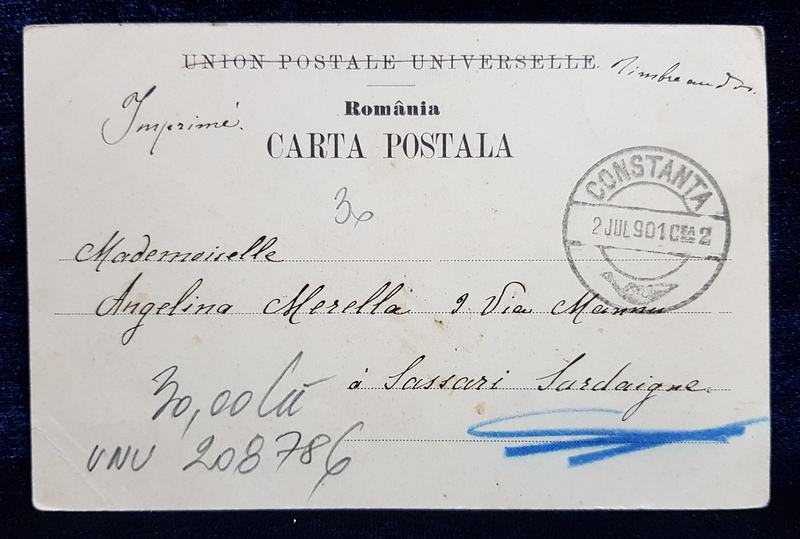 UNION POSTALE UNIVERSELLE.
Timbre au dos.
Imprimé.
România
CARTA POSTALA
CONSTANTA
2 JUL 901 Cᴱᴬ 2
30
Mademoiselle
Angelina Merella 9 Via Mannu
à Sassari Sardaigne.
30,00 lei
UNU 208786